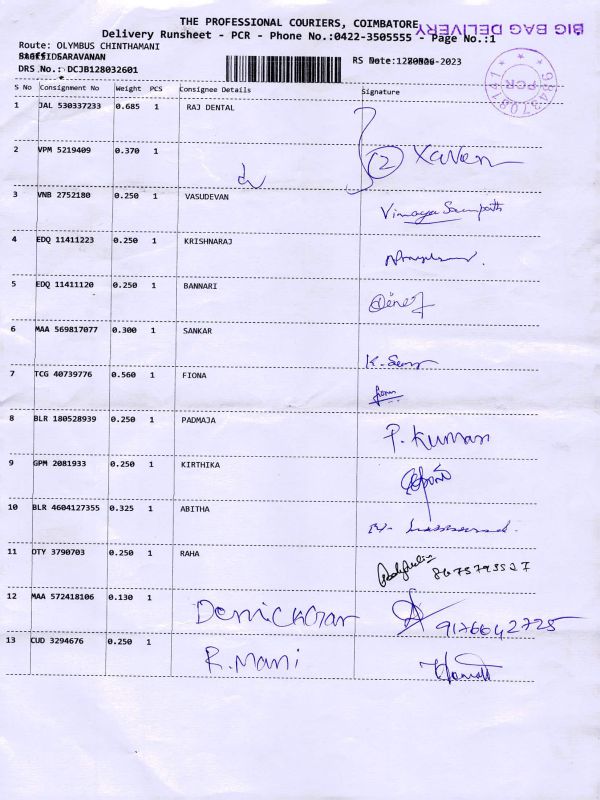 THE PROFESSIONAL COURIERS, COIMBATORE
Delivery Runsheet - PCR - Phone No.:0422-3505555 - Page No.:1
BIG BAG DELIVERY
Route: OLYMBUS CHINTHAMANI
SARAVANAN
DRS No.: DCJB128032601
PCR
S No Consignment No Weight PCS Consignee Details Signature
1 JAL 530337233 0.685 1 RAJ DENTAL
2 VPM 5219409 0.370 1 (2) Xavier
3 VNB 2752180 0.250 1 VASUDEVAN Vinaya Sampath
4 EDQ 11411223 0.250 1 KRISHNARAJ
5 EDQ 11411120 0.250 1 BANNARI
6 MAA 569817077 0.300 1 SANKAR K.
7 TCG 40739776 0.560 1 FIONA
8 BLR 180528939 0.250 1 PADMAJA P. Kumar
9 GPM 2081933 0.250 1 KIRTHIKA
10 BLR 4604127355 0.325 1 ABITHA
11 OTY 3790703 0.250 1 RAHA
12 MAA 572418106 0.130 1 9176642725
13 CUD 3294676 0.250 1 R.Mani